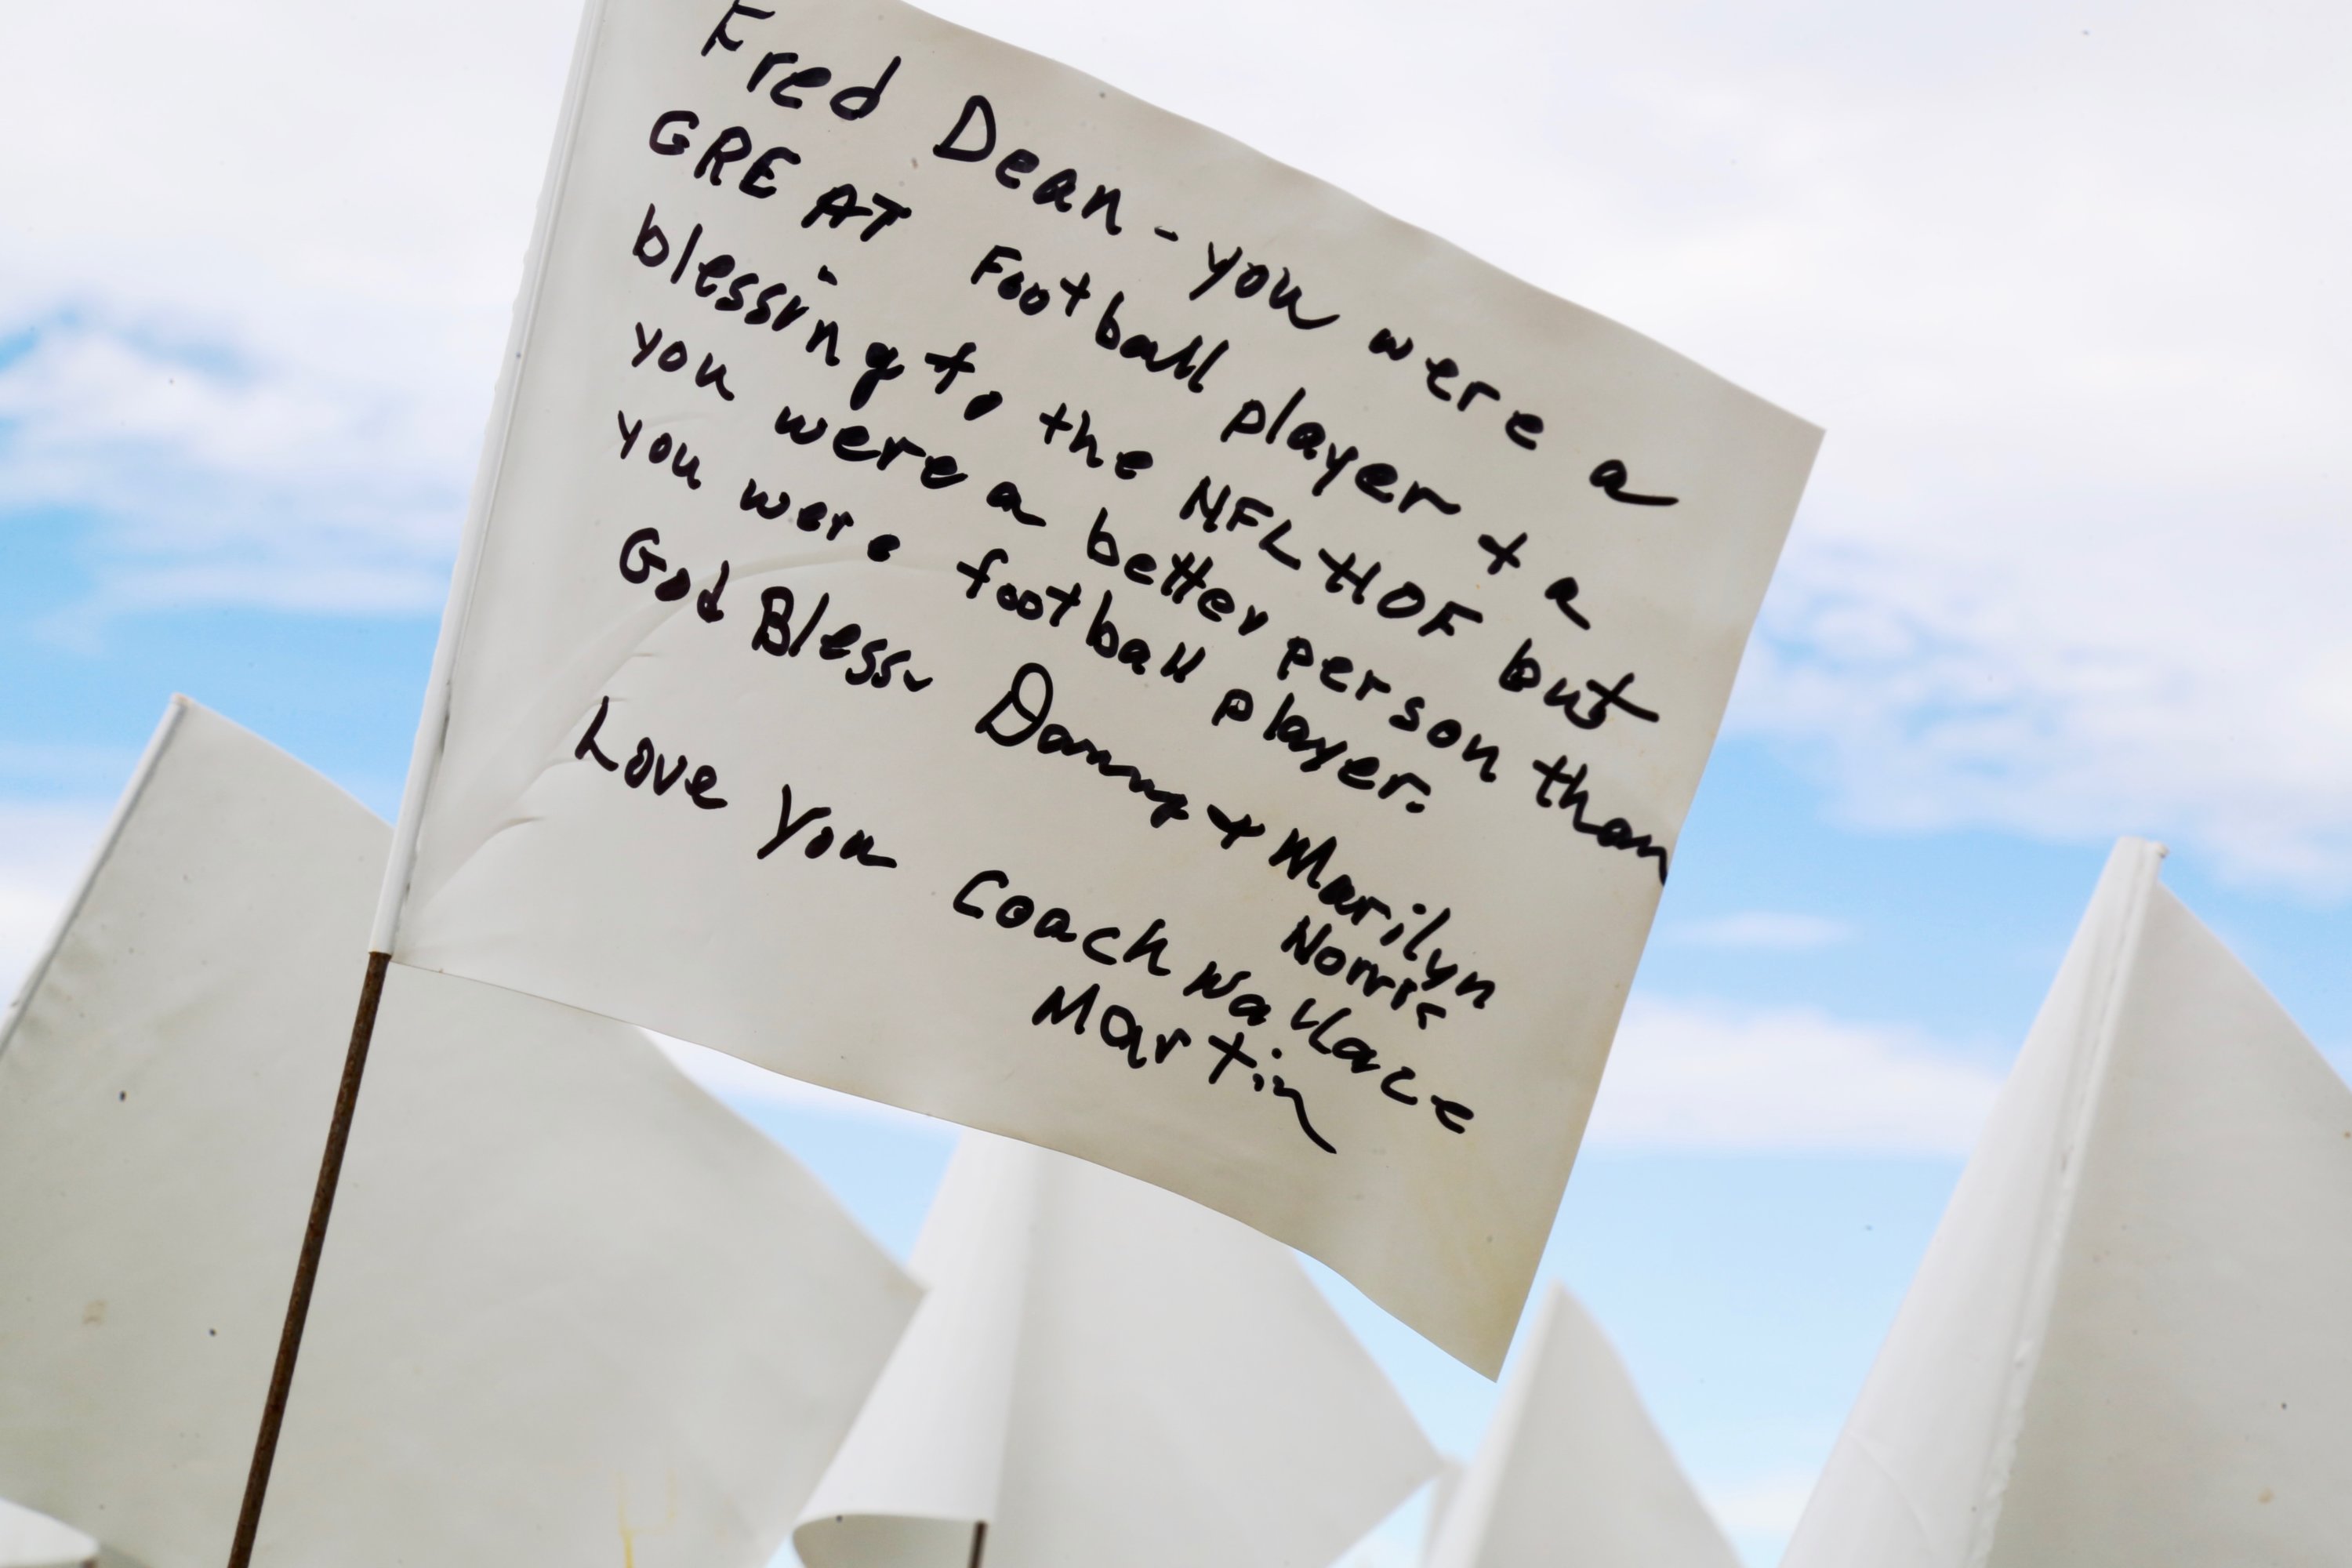 Fred Dean - you were a
GREAT Football player + a
blessing to the NFL HOF but
you were a better person than
you were football player.
God Bless Danny + Marilyn
Norris
Love You Coach Wallace
Martin